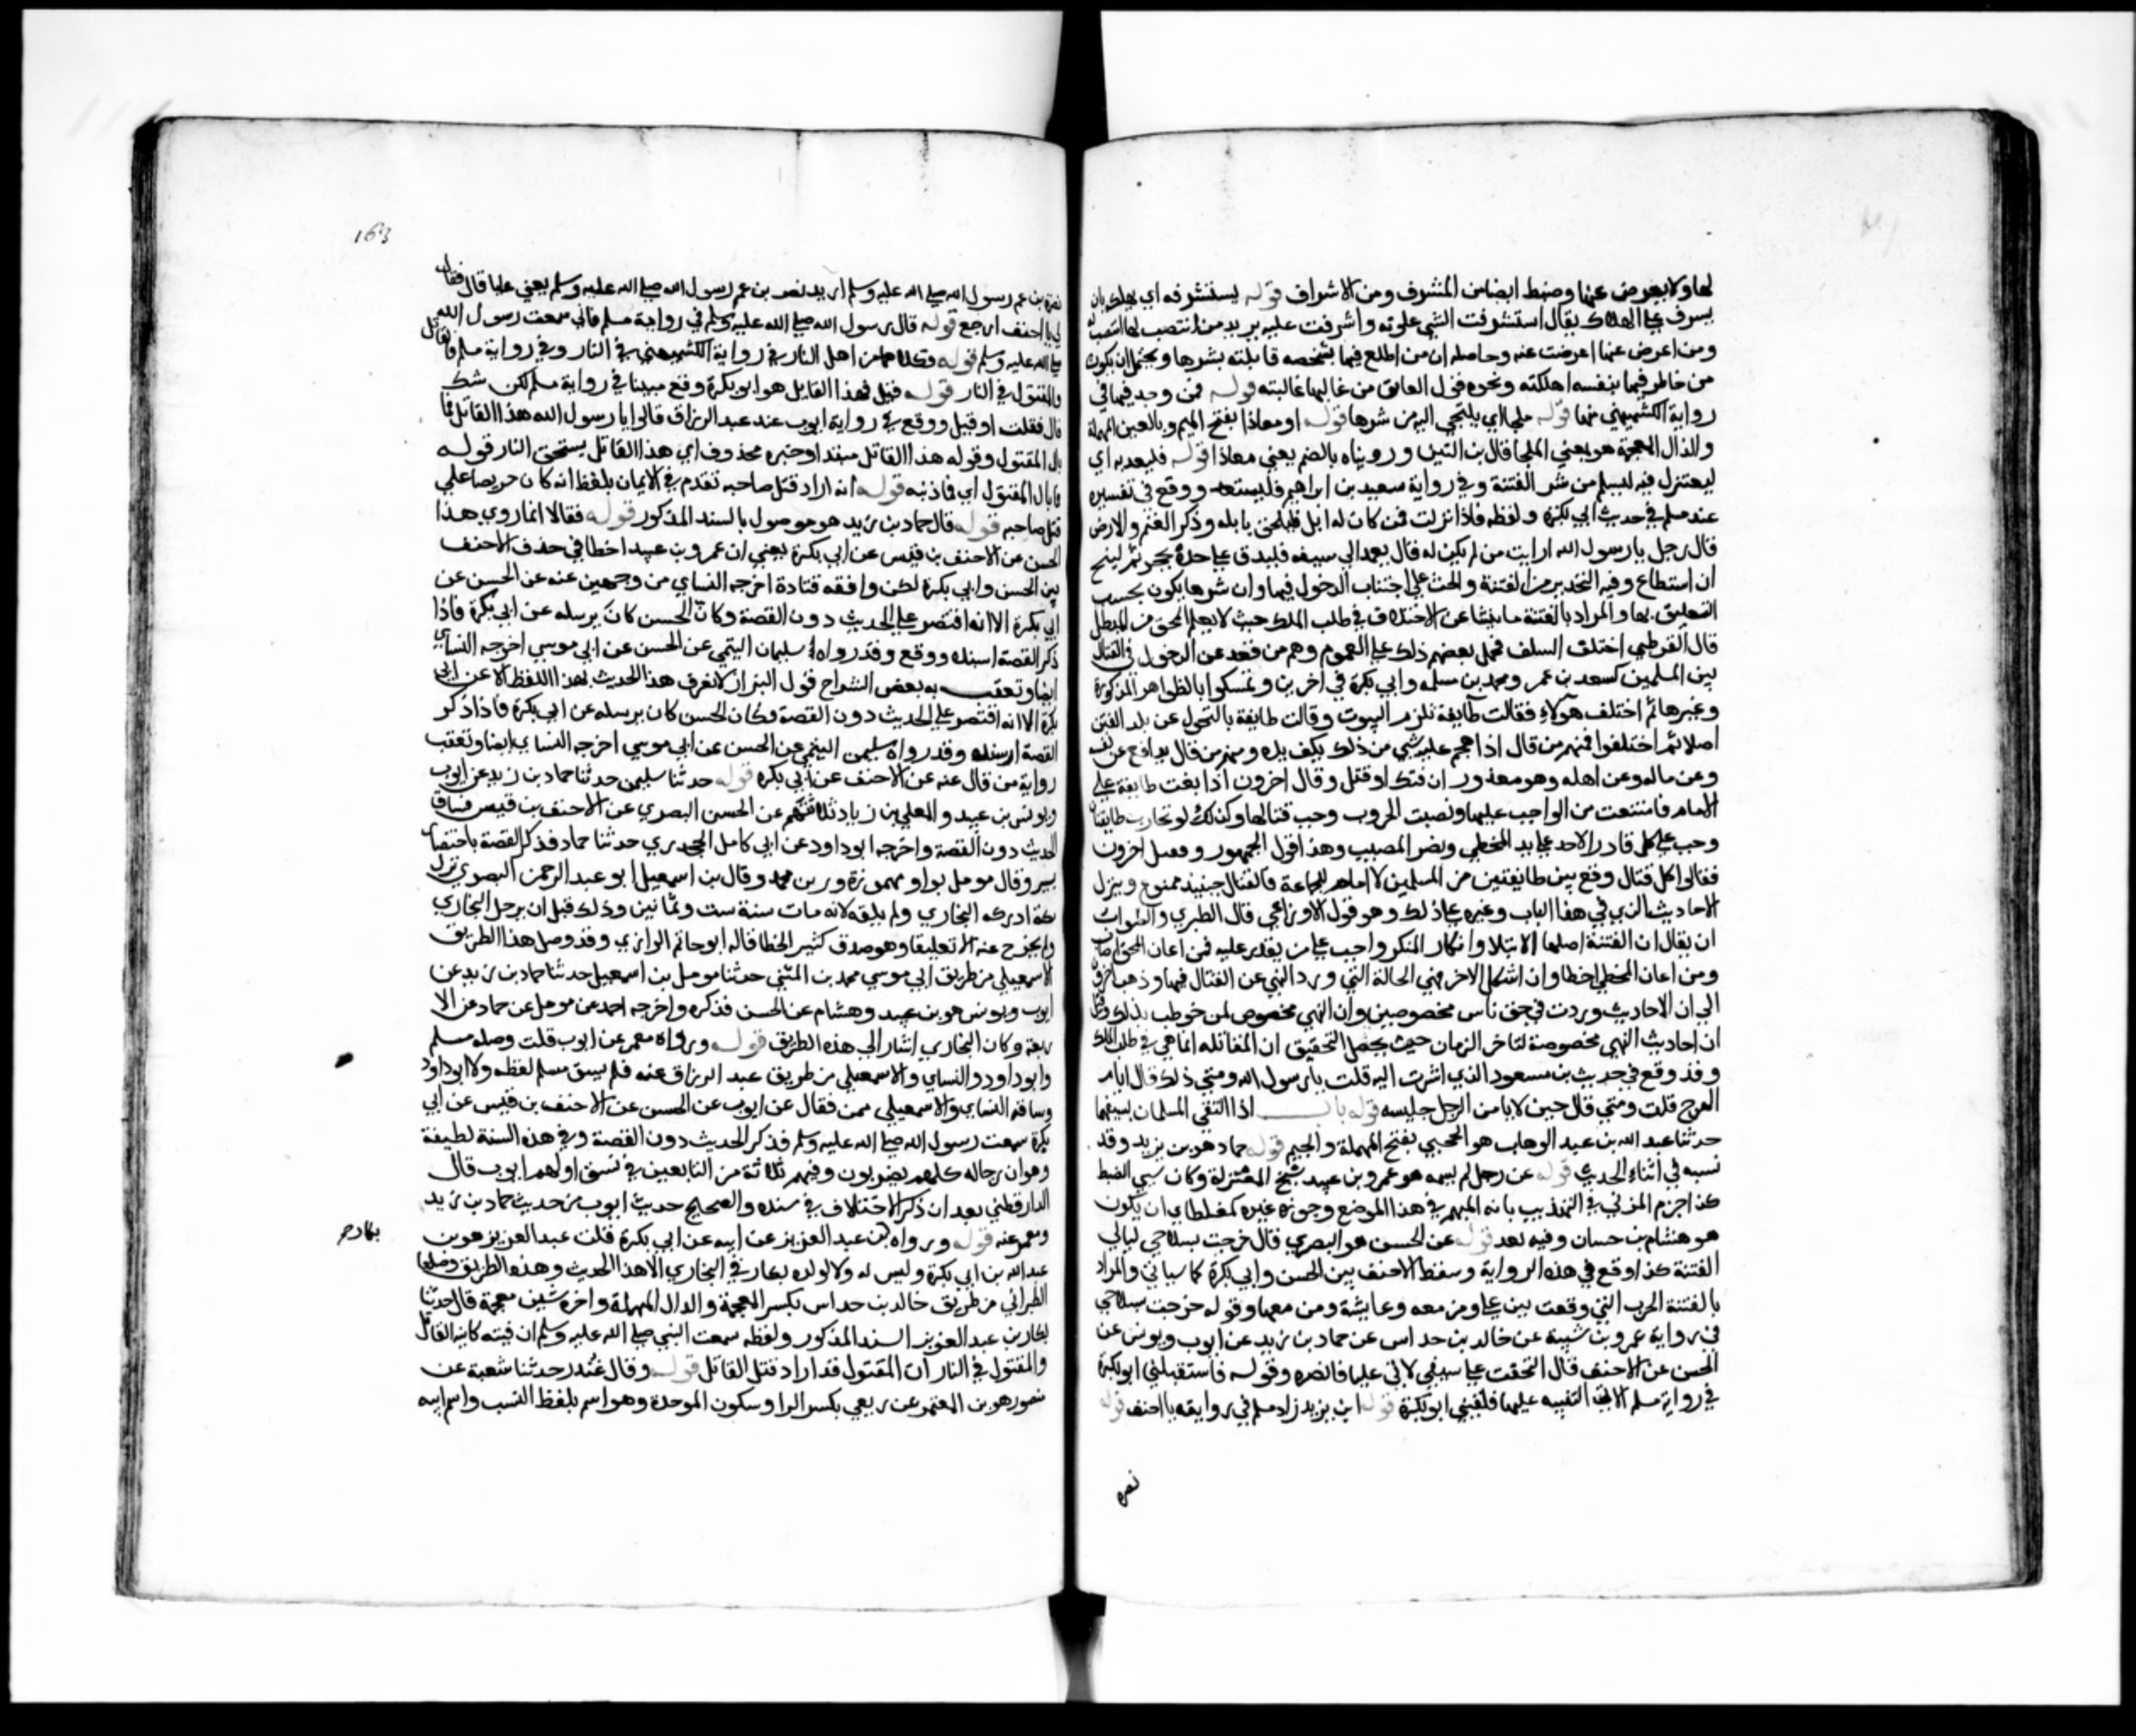 لها ولا يعرض عنها وضبط ايضا من الشرف ومن الاشراف قوله يستشرفه اي يهلكه بان
يشرف على الهلاك يقال استشرفت الشي علوته واشرفت عليه يريد من انتصب لها انتصبت له
ومن اعرض عنها اعرضت عنه وحاصله ان من اطلع فيها بشخصه قابلته بشرها ويحتمل ان يكون
من خاطر فيها بنفسه اهلكته ونحوه قول العاتق من غالبها غالبته قوله فمن وجد فيها في
رواية الكشميهني منها قوله ملجا اي يلتجي اليه من شرها قوله او معاذا بفتح الميم وبالعين المهملة
والذال المعجمة هو بمعني الملجا قال بن التين ورويناه بالضم يعني معاذا قوله فليعذ به اي
ليعتزل فيه ليسلم من شر الفتنة وفي رواية سعيد بن ابراهيم فليستعذ ووقع في تفسيره
عند مسلم في حديث ابي بكرة ولفظه فاذا نزلت فمن كان له ابل فليلحق بابله وذكر الغنم والارض
قال رجل يا رسول الله ارايت من لم يكن له قال يعمد الي سيفه فيدق على حده بحجر ثم لينج
ان استطاع وفيه التحذير من الفتنة والحث علي اجتناب الدخول فيها وان شرها يكون بحسب
التعليق بها والمراد بالفتنة ما ينشا عن الاختلاف في طلب الملك حيث لا يعلم المحق من المبطل
قال القرطبي اختلف السلف فحمل بعضهم ذلك على العموم وهم من قعد عن الدخول في القتال
بين المسلمين كسعد بن عمر ومحمد بن مسلمه وابي بكرة في اخرين وتمسكوا بالظواهر المذكورة
وغيرها ثم اختلف هولاء فقالت طايفة تلزم البيوت وقالت طايفة بالتحول عن بلد الفتن
اصلا ثم اختلفوا فمنهم من قال اذا هجم عليه شي من ذلك يكف يده ومنهم من قال يدافع عن نفسه
وعن ماله وعن اهله وهو معذور ان قتل او قتل وقال اخرون اذا بغت طايفة على
الامام فامتنعت من الواجب عليها ونصبت الحروب وجب قتالها وكذلك لو تحاربت طايفتان
وجب على كل قادر الاخذ على يد المخطي ونصر المصيب وهذا قول الجمهور وفصل اخرون
فقالوا كل قتال وقع بين طايفتين من المسلمين لا امام للجماعة فالقتال حينيذ ممنوع وينزل
الاحاديث الذي في هذا الباب وغيره على ذلك وهو قول الاوزاعي قال الطبري والصواب
ان يقال ان الفتنة اصلها الابتلا وانكار المنكر واجب على من يقدر عليه فمن اعان المحق اصاب
ومن اعان المخطي اخطا وان اشكل الامر فهي الحالة التي ورد النهي عن القتال فيها وذهب اخرون
الي ان الاحاديث وردت في حق ناس مخصوصين وان النهي مخصوص لمن خوطب بذلك وقيل
ان احاديث النهي مخصوصة لتاخر الزمان حيث يحصل التحقيق ان المقاتله انما هي في طلب الملك
وقد وقع في حديث بن مسعود الذي اشرت اليه قلت يا رسول الله ومتي ذلك قال ايام
الهرج قلت ومتي قال حين لا يامن الرجل جليسه قوله باب اذا التقي المسلمان بسيفهما
حدثنا عبد الله بن عبد الوهاب هو الحجبي بفتح المهملة والجيم قوله حماد هو بن يزيد وقد
نسبه في اثناء الحديث قوله عن رجل لم يسمه هو عمرو بن عبيد شيخ المعتزلة وكان سي الضبط
كذا جزم المزني في التهذيب بانه المبهم في هذا الموضع وجوزه غيره كمغلطاي ان يكون
هو هشام بن حسان وفيه بعد قوله عن الحسن هو البصري قال خرجت بسلاحي ليالي
الفتنة كذا وقع في هذه الرواية وسقط الاحنف بين الحسن وابي بكرة كما سياتي والمراد
بالفتنة الحرب التي وقعت بين علي ومن معه وعايشة ومن معها وقوله خرجت بسلاحي
في رواية عمرو بن شيبة عن خالد بن حداس عن حماد بن زيد عن ايوب ويونس عن
الحسن عن الاحنف قال التحقت علي سيفي لاتي عليا فانصره وقوله فاستقبلني ابو بكرة
في رواية مسلم الاتية التنبيه عليها فلقيني ابو بكرة قوله اين يزيد زاد مسلم في روايته يا احنف قوله
نصره
163
نصرة بن عم رسول الله صلى الله عليه وسلم اريد نصر بن عم رسول الله صلى الله عليه وسلم يعني عليا قال فقال
لي يا احنف ارجع قوله قال رسول الله صلى الله عليه وسلم في رواية مسلم فاني سمعت رسول الله
صلى الله عليه وسلم قوله فكلاهما من اهل النار في رواية الكشميهني في النار وفي رواية مسلم فالقاتل
والمقتول في النار قوله قيل فهذا القايل هو ابو بكرة وقع مبينا في رواية مسلم لكن شك
قال فقلت او قيل ووقع في رواية ايوب عند عبد الرزاق قالوا يا رسول الله هذا القاتل فما
بال المقتول وقوله هذا القاتل مبتدا وخبره محذوف اي هذا القاتل يستحق النار قوله
فما بال المقتول اي فما ذنبه قوله انه اراد قتل صاحبه تقدم في الايمان بلفظ انه كان حريصا علي
قتل صاحبه قوله قال حماد بن زيد هو موصول بالسند المذكور قوله فقالا انما روي هذا
الحسن عن الاحنف بن قيس عن ابي بكرة يعني ان عمرو بن عبيد اخطا في حذف الاحنف
بين الحسن وابي بكرة لكن وافقه قتادة اخرجه النساي من وجهين عنه عن الحسن عن
ابي بكرة الا انه اقتصر على الحديث دون القصة وكان الحسن كان يرسله عن ابي بكرة فاذا
ذكر القصة اسنده ووقع وقد رواه سليمان التيمي عن الحسن عن ابي موسي اخرجه النساي
ايضا وتعقب به بعض الشراح قول البزار لا نعرف هذا الحديث بهذا اللفظ الا عن ابي
بكرة الا انه اقتصر على الحديث دون القصة وكان الحسن كان يرسله عن ابي بكرة فاذا ذكر
القصة ارسنده وقد رواه سليمن التيمي عن الحسن عن ابي موسي اخرجه النساي ايضا وتعقب
رواية من قال عنه عن الاحنف عن ابي بكره قوله حدثنا سليمن حدثنا حماد بن زيد عن ايوب
ويونس بن عبيد والمعلي بن زياد ثلاثتهم عن الحسن البصري عن الاحنف بن قيس فساق
الحديث دون القصة واخرجه ابو داود عن ابي كامل الجحدري حدثنا حماد فذكر القصة باختصار
يسير وقال مومل بواو مهموزة وزن محمد وقال بن اسمعيل ابو عبد الرحمن البصري نزل
مكة ادركه البخاري ولم يلقه لانه مات سنة ست وثمانين وذلك قبل ان يرحل البخاري
ولم يخرج عنه الا تعليقا وهو صدوق كثير الخطا قاله ابو حاتم الرازي وقد وصل هذا الطريق
الاسمعيلي من طريق ابي موسي محمد بن المثني حدثنا مومل بن اسمعيل حدثنا حماد بن زيد عن
ايوب ويونس هو بن عبيد وهشام عن الحسن فذكره واخرجه احمد عن مومل عن حماد عن الا
ربعة وكان البخاري اشار الي هذه الطريق قوله ورواه معمر عن ايوب قلت وصله مسلم
وابو داود والنساي والاسمعيلي من طريق عبد الرزاق عنه فلم يسق مسلم لفظه ولا ابو داود
وساقه النساي والاسمعيلي فقال عن ايوب عن الحسن عن الاحنف بن قيس عن ابي
بكرة سمعت رسول الله صلى الله عليه وسلم فذكر الحديث دون القصة وفي هذه السنة لطيفة
وهو ان رجاله كلهم بصريون وفيهم ثلاثة من التابعين في نسق اولهم ايوب قال
الدارقطني بعد ان ذكر الاختلاف في سنده والصحيح حديث ايوب من حديث حماد بن زيد
ومعمر عنه قوله ورواه بكار بن عبد العزيز عن ابيه عن ابي بكرة قلت عبد العزيز هو بن
عبد الله بن ابي بكرة وليس له ولا لولده بكار في البخاري الا هذا الحديث وهذه الطريق وصلها
الطبراني من طريق خالد بن حداس بكسر المعجمة والدال المهملة واخره شين معجمة قال حدثنا
بكار بن عبد العزيز السند المذكور ولفظه سمعت النبي صلى الله عليه وسلم ان فتنة كاينة القاتل
والمقتول في النار ان المقتول قد اراد قتل القاتل قوله وقال غندر حدثنا شعبة عن
منصور هو بن المعتمر عن ربعي بكسر الرا وسكون الموحدة وهو اسم بلفظ النسب واسم ابيه
بكار صح